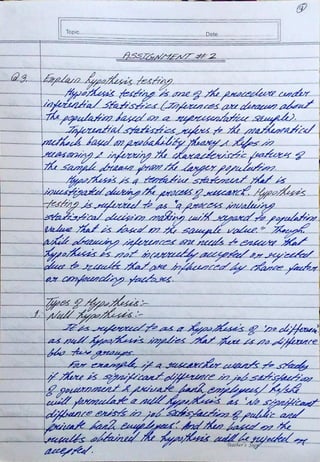 ①
Topic
Date
ASSIGNMENT # 2
Q3. Explain hypothesis testing
Hypothesis testing is one of the procedure under
inferential statistics (Inferences are drawn about
the population based on a representative sample).
Inferential statistics refers to the mathematical
methods based on probability theory & helps in
reasoning & inferring the characteristic features of
the sample drawn from the larger population.
Hypothesis is a tentative statement that is
investigated during the process of research. Hypothesis
testing is referred to as "a process involving
statistical decision making with regard to population
value that is based on the sample value." Though
while drawing inferences one needs to ensure that
hypothesis is not incorrectly accepted or rejected
due to results that are influenced by chance factor
or confounding factors.
Types of Hypothesis:-
1. Null hypothesis:-
It is referred to as a hypothesis of 'no different'
as null hypothesis implies that there is no difference
b/w two groups.
For example, if a researcher wants to study
if there is significant difference in job satisfaction
of government & private bank employees, he/she
will formulate a null hypothesis as 'No significant
difference exists in job satisfaction of public and
private bank employees'. And then based on the
results obtained the hypothesis will be rejected or
accepted.
Teacher's Sign